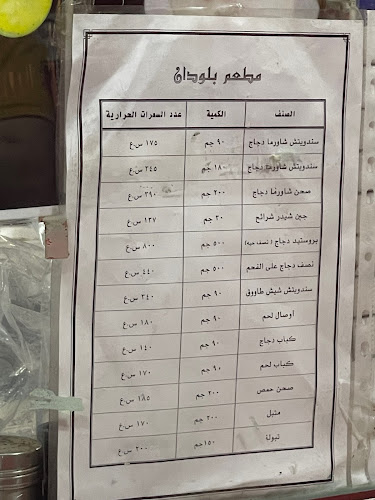 مطعم بلودان
الصنف الكمية عدد السعرات الحرارية
سندويتش شاورما دجاج ٩٠ جم ١٧٥ س.ع
سندويتش شاورما دجاج ١٨٠ جم ٢٤٥ س.ع
صحن شاورما دجاج ٢٠٠ جم ٣٩٠ س.ع
جبن شيدر شرائح ٢٠ جم ١٣٧ س.ع
بروستيد دجاج (نصف حبه) ٥٠٠ جم ٨٠٠ س.ع
نصف دجاج على الفحم ٥٠٠ جم ٤٤٠ س.ع
سندويتش شيش طاووق ٩٠ جم ٢٤٠ س.ع
أوصال لحم ٩٠ جم ١٨٠ س.ع
كباب دجاج ٩٠ جم ١٤٠ س.ع
كباب لحم ٩٠ جم ١٧٠ س.ع
صحن حمص ٢٠٠ جم ١٨٥ س.ع
متبل ٢٠٠ جم ١٧٠ س.ع
تبولة ١٥٠جم ٢٠٠ س.ع